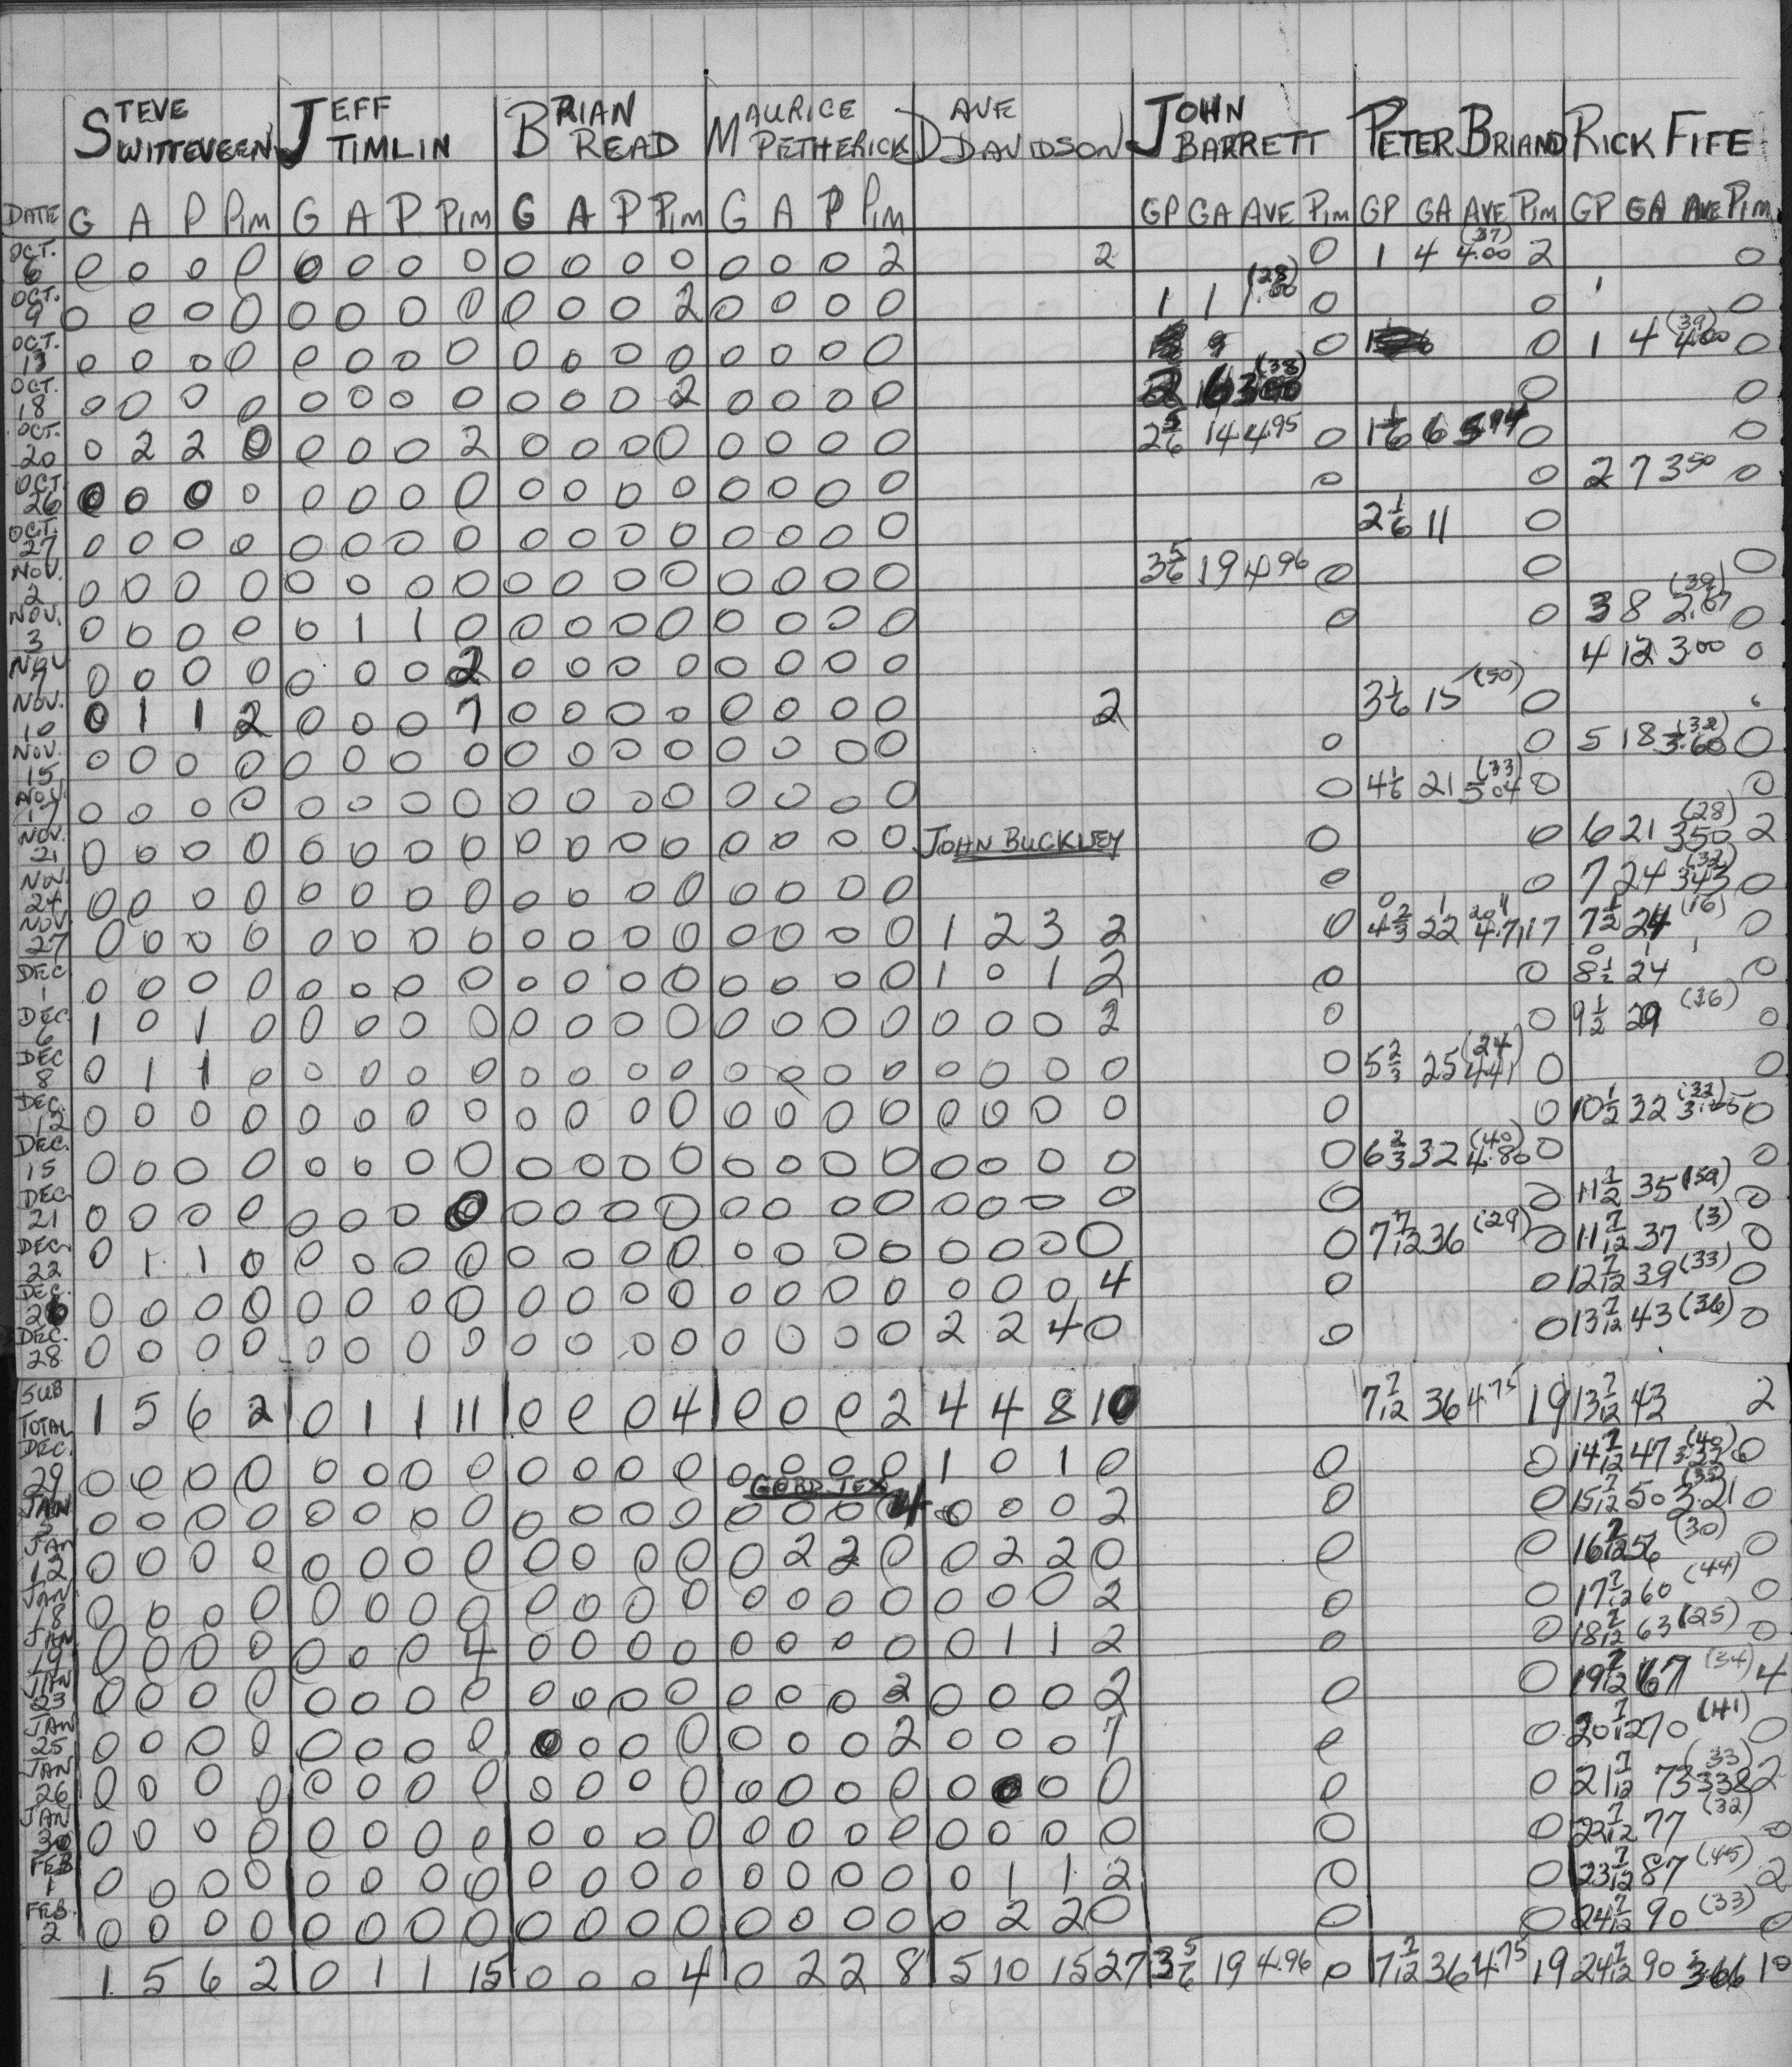 STEVE SWITTEVEEN JEFF TIMLIN BRIAN READ MAURICE PETHERICK DAVE DAVIDSON JOHN BARRETT PETER BRIAND RICK FIFE
DATE G A P PIM G A P PIM G A P PIM G A P PIM GP GA AVE PIM GP GA AVE PIM GP GA AVE PIM
OCT. 6 0 0 0 0 0 0 0 0 0 0 0 0 0 0 0 2 2 0 1 4 4.00 (37) 2 0
OCT. 9 0 0 0 0 0 0 0 0 0 0 0 2 0 0 0 0 1 1 1.00 (28) 0 0 0
OCT. 13 0 0 0 0 0 0 0 0 0 0 0 0 0 0 0 0 0 0 1 4 4.00 (39) 0
OCT. 18 0 0 0 0 0 0 0 0 0 0 0 2 0 0 0 0 2 6 3.00 (38) 0 0
OCT. 20 0 2 2 0 0 0 0 2 0 0 0 0 0 0 0 0 2 5/6 14 4.95 0 1 1/6 6 5.14 0 0
OCT. 26 0 0 0 0 0 0 0 0 0 0 0 0 0 0 0 0 0 0 2 7 3.50 0
OCT. 27 0 0 0 0 0 0 0 0 0 0 0 0 0 0 0 0 2 1/6 11 0
NOV. 2 0 0 0 0 0 0 0 0 0 0 0 0 0 0 0 0 3 5/6 19 4.96 0 0 0
NOV. 3 0 0 0 0 0 1 1 0 0 0 0 0 0 0 0 0 0 0 3 8 2.67 (39) 0
NOV 9 0 0 0 0 0 0 0 2 0 0 0 0 0 0 0 0 4 12 3.00 0
NOV. 10 0 1 1 2 0 0 0 7 0 0 0 0 0 0 0 0 2 3 1/6 15 (50) 0
NOV. 15 0 0 0 0 0 0 0 0 0 0 0 0 0 0 0 0 0 0 5 18 3.60 (32) 0
NOV. 17 0 0 0 0 0 0 0 0 0 0 0 0 0 0 0 0 0 4 1/6 21 5.04 (33) 0 0
NOV. 21 0 0 0 0 0 0 0 0 0 0 0 0 0 0 0 0 JOHN BUCKLEY 0 0 6 21 3.50 (28) 2
NOV 24 0 0 0 0 0 0 0 0 0 0 0 0 0 0 0 0 0 0 7 24 3.43 (32) 0
NOV. 27 0 0 0 0 0 0 0 0 0 0 0 0 0 0 0 0 1 2 3 2 0 4 2/3 22 4.71 17 7 1/2 24 (16) 0
DEC 1 0 0 0 0 0 0 0 0 0 0 0 0 0 0 0 0 1 0 1 2 0 0 8 1/2 24 0
DEC 6 1 0 1 0 0 0 0 0 0 0 0 0 0 0 0 0 0 0 0 2 0 0 9 1/2 29 (36) 0
DEC 8 0 1 1 0 0 0 0 0 0 0 0 0 0 0 0 0 0 0 0 0 0 5 2/3 25 4.41 (24) 0 0
DEC. 12 0 0 0 0 0 0 0 0 0 0 0 0 0 0 0 0 0 0 0 0 0 0 10 1/2 32 (32) 0
DEC. 15 0 0 0 0 0 0 0 0 0 0 0 0 0 0 0 0 0 0 0 0 0 6 2/3 32 4.80 (40) 0 0
DEC 21 0 0 0 0 0 0 0 0 0 0 0 0 0 0 0 0 0 0 0 0 0 0 11 1/2 35 (59) 0
DEC 22 0 1 1 0 0 0 0 0 0 0 0 0 0 0 0 0 0 0 0 0 0 7 7/12 36 (29) 0 11 7/12 37 (3) 0
DEC. 26 0 0 0 0 0 0 0 0 0 0 0 0 0 0 0 0 0 0 0 4 0 0 12 7/12 39 (33) 0
DEC. 28 0 0 0 0 0 0 0 0 0 0 0 0 0 0 0 0 2 2 4 0 0 0 13 7/12 43 (36) 0
SUB TOTAL 1 5 6 2 0 1 1 11 0 0 0 4 0 0 0 2 4 4 8 10 7 7/12 36 4.75 19 13 7/12 43 2
DEC. 29 0 0 0 0 0 0 0 0 0 0 0 0 0 0 0 0 1 0 1 0 0 0 14 7/12 47 (40) 0
GORD
JAN 0 0 0 0 0 0 0 0 0 0 0 0 0 0 0 4 0 0 0 2 0 0 15 7/12 50 3.21 0
JAN 12 0 0 0 0 0 0 0 0 0 0 0 0 0 2 2 0 0 2 2 0 0 0 16 7/12 56 (30) 0
JAN 18 0 0 0 0 0 0 0 0 0 0 0 0 0 0 0 0 0 0 0 2 0 0 17 7/12 60 (44) 0
JAN 19 0 0 0 0 0 0 0 4 0 0 0 0 0 0 0 0 0 1 1 2 0 0 18 7/12 63 (25) 0
JAN 23 0 0 0 0 0 0 0 0 0 0 0 0 0 0 0 2 0 0 0 2 0 0 19 7/12 67 (34) 4
JAN 25 0 0 0 0 0 0 0 0 0 0 0 0 0 0 0 2 0 0 0 7 0 0 20 7/12 70 (41) 0
JAN 26 0 0 0 0 0 0 0 0 0 0 0 0 0 0 0 0 0 0 0 0 0 0 21 7/12 73 3.38 (33) 2
JAN 30 0 0 0 0 0 0 0 0 0 0 0 0 0 0 0 0 0 0 0 0 0 0 22 7/12 77 (32) 0
FEB 1 0 0 0 0 0 0 0 0 0 0 0 0 0 0 0 0 0 1 1 2 0 0 23 7/12 87 (45) 2
FEB. 2 0 0 0 0 0 0 0 0 0 0 0 0 0 0 0 0 0 2 2 0 0 0 24 7/12 90 (33) 0
1 5 6 2 0 1 1 15 0 0 0 4 0 2 2 8 5 10 15 27 3 5/6 19 4.96 0 7 7/12 36 4.75 19 24 7/12 90 3.66 10